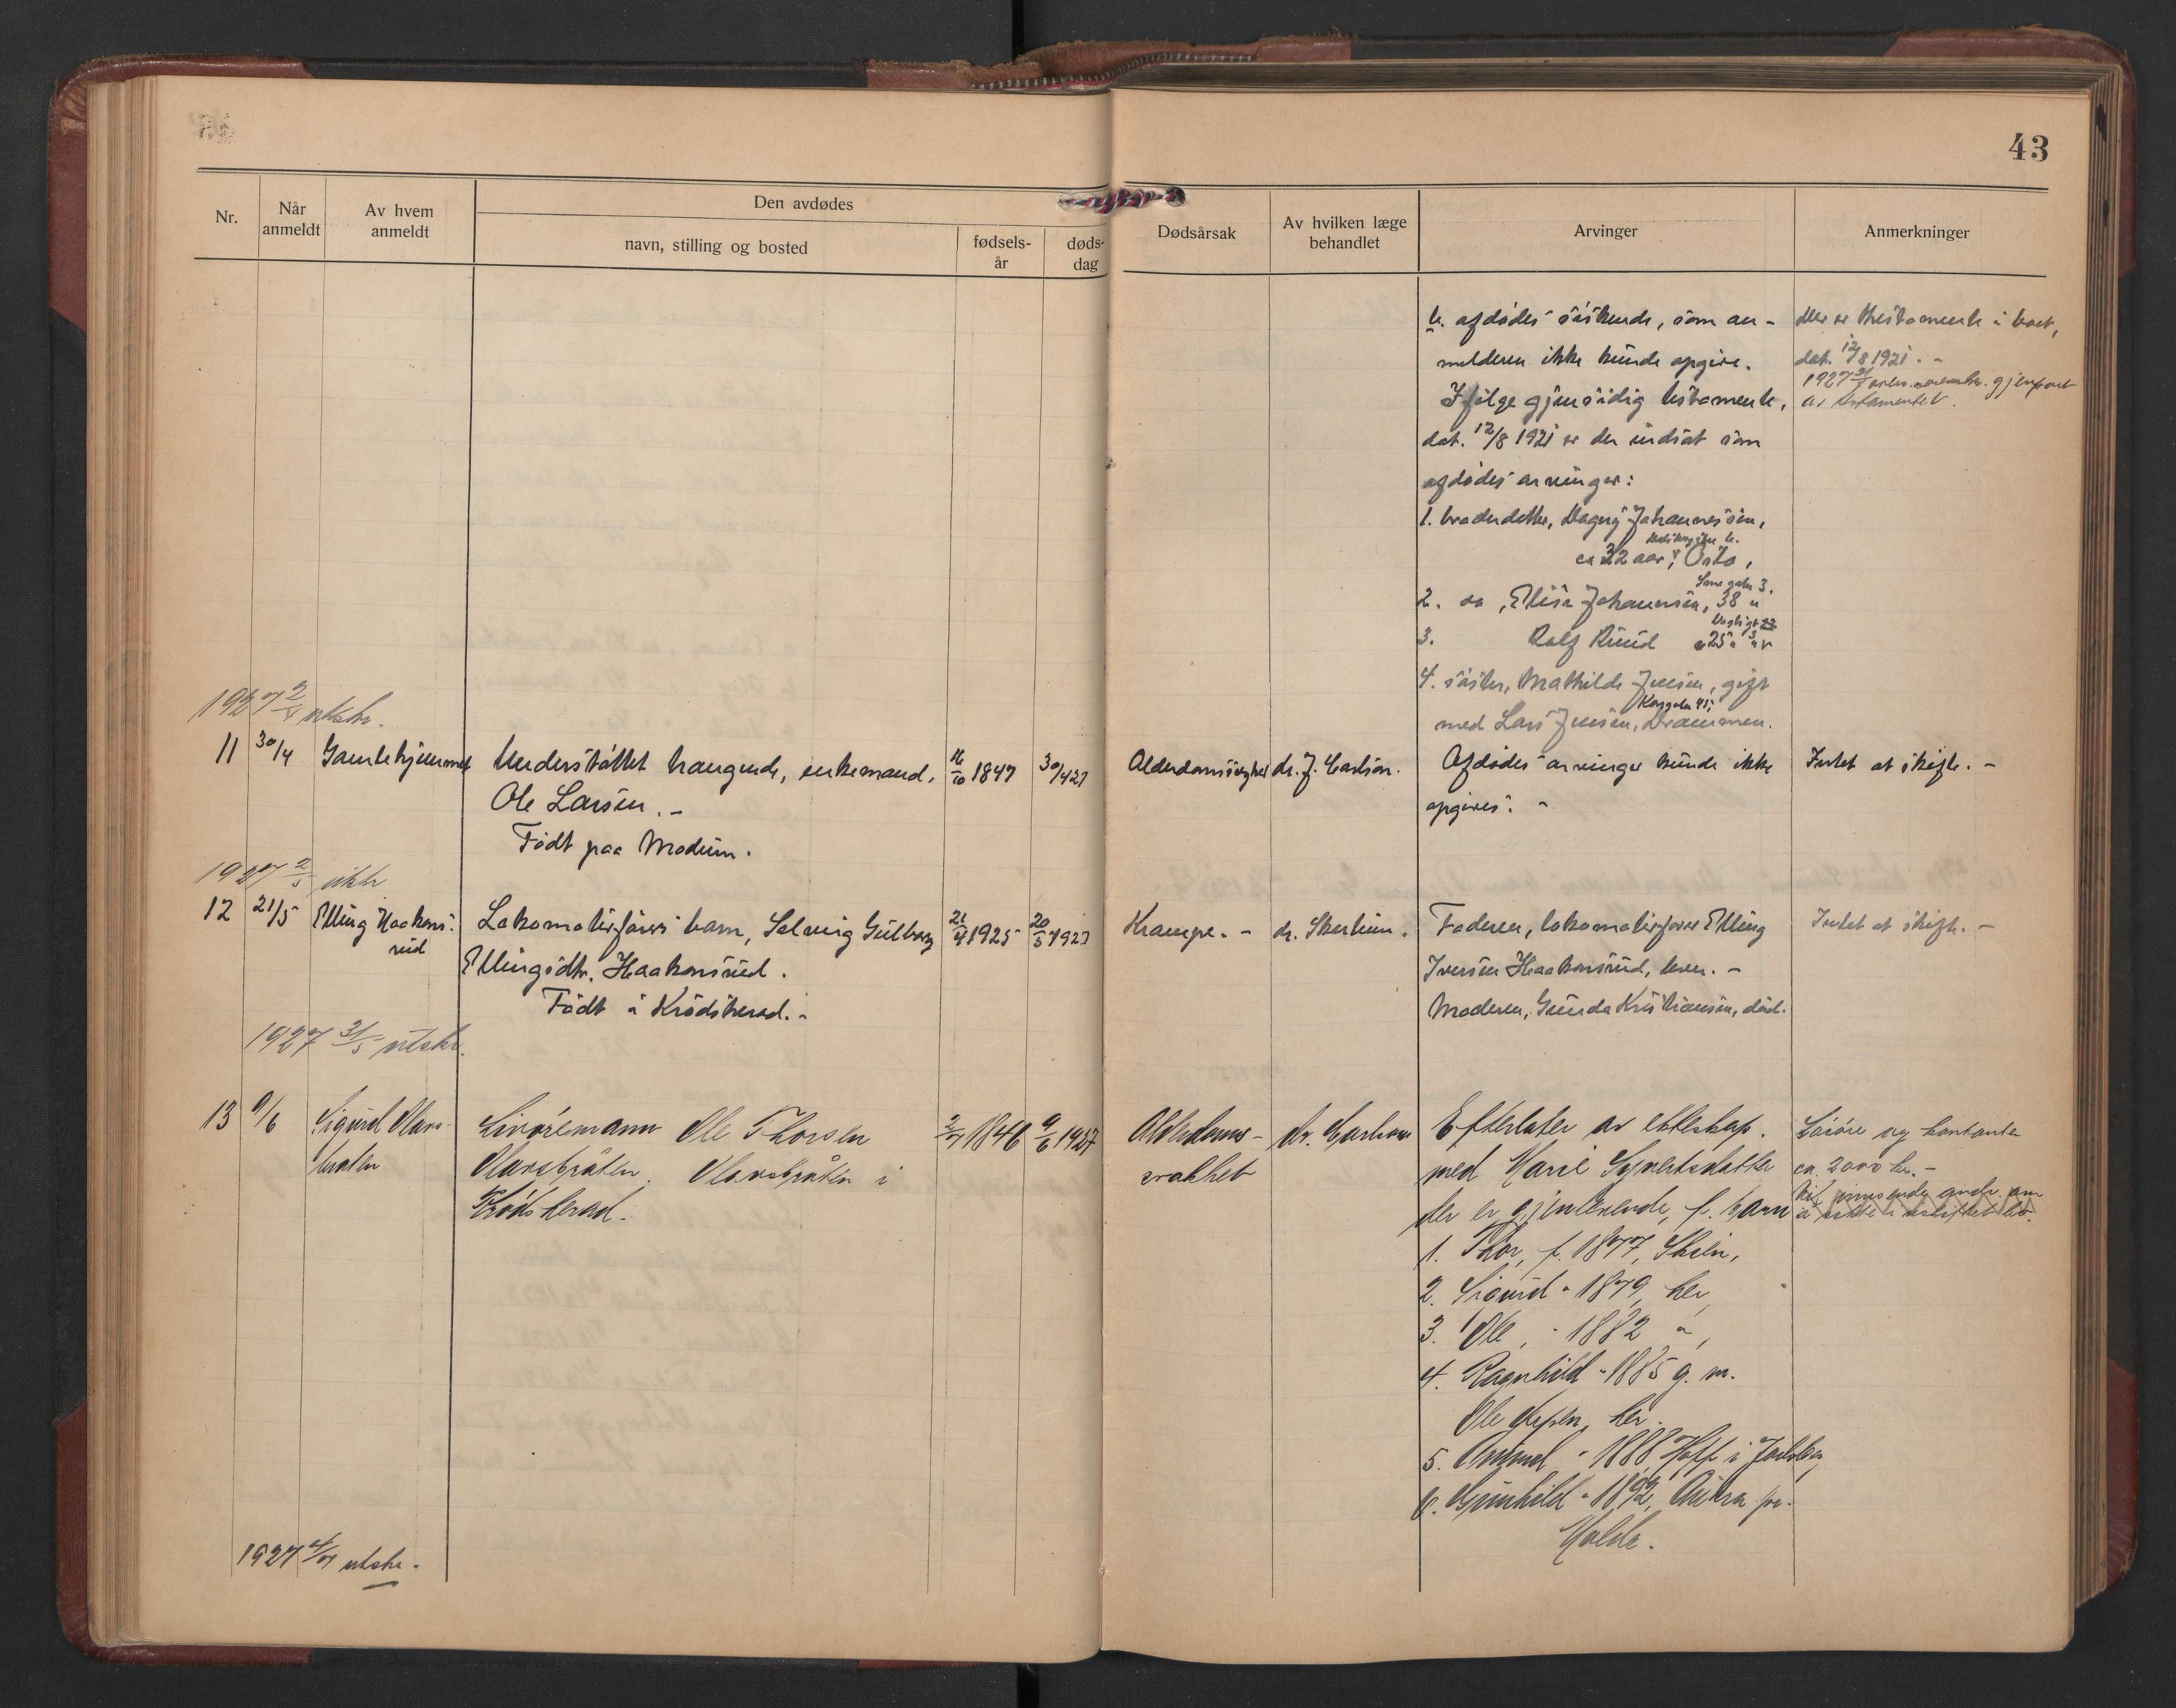 43
Nr.
Når anmeldt
Av hvem anmeldt
Den avdødes
navn, stilling og bosted
fødsels-år
døds-dag
Dødsårsak
Av hvilken læge behandlet
Arvinger
Anmerkninger
b. afdødes søskende, som an-
melderen ikke kunde opgive.
Ifølge gjensidig testamente,
dat. 12/8 1921 er der indsat som
afdødes arvinger:
1. broderdatter, Dagny Johannessen,
ca 32 aar, Oslo,
2. do, Elisa Johannesen, 38 "
Smegaten 3.
3. Rolf Ruud 25 "
4. søster, Mathilde Jensen, gift
med Lars Jensen, Drammen.
Der er testamente i boet,
dat. 12/8 1921. -
av testamentet.
1927 2/5 utskr.
11 30/4 Gamlehjemmet
Understøttet trængende, enkemand,
Ole Larsen. -
Født paa Modum.
16/10 1847
30/4 27
Alderdomssvaghet
dr. J. Carlson.
Afdødes arvinger kunde ikke
opgives. -
Intet at skifte. -
1927 2/5 utskr
12 21/5 Elling Haakens-
rud
Lokomotivførers barn, Solveig Gulborg
Ellingsdtr. Haakensrud.
Født i Krødsherad. -
21/4 1925
20/5 1927
Krampe. -
dr. Skartum.
Faderen, lokomotivfører Elling
Iversen Haakensrud, lever. -
Moderen, Gunda Kristiansen, død.
Intet at skifte. -
1927 31/5 utskr.
13 9/6 Sigurd Olavs-
braten
Livøremann Ole Thorsen
Olavsbråten. Olavsbråten i
Krødsherad.
2/7 1846
9/6 1927
Alderdoms-
svakhet
dr. Carlson
Efterlater av ekteskap
med Marie Syvertsdatter
der er gjenlevende, f. barn
1. Thor, f. 1877, Skien,
2. Sigurd " 1879, her,
3. Ole, " 1882 ",
4. Ragnhild " 1885 g. m.
Ole her.
5. " 1888 Hoff i Jarlsberg
6. Gunhild " 1892, Aukra pr.
Molde.
Løsøre og kontanter
ca. 2000 kr. -
1927 4/7 utskr.